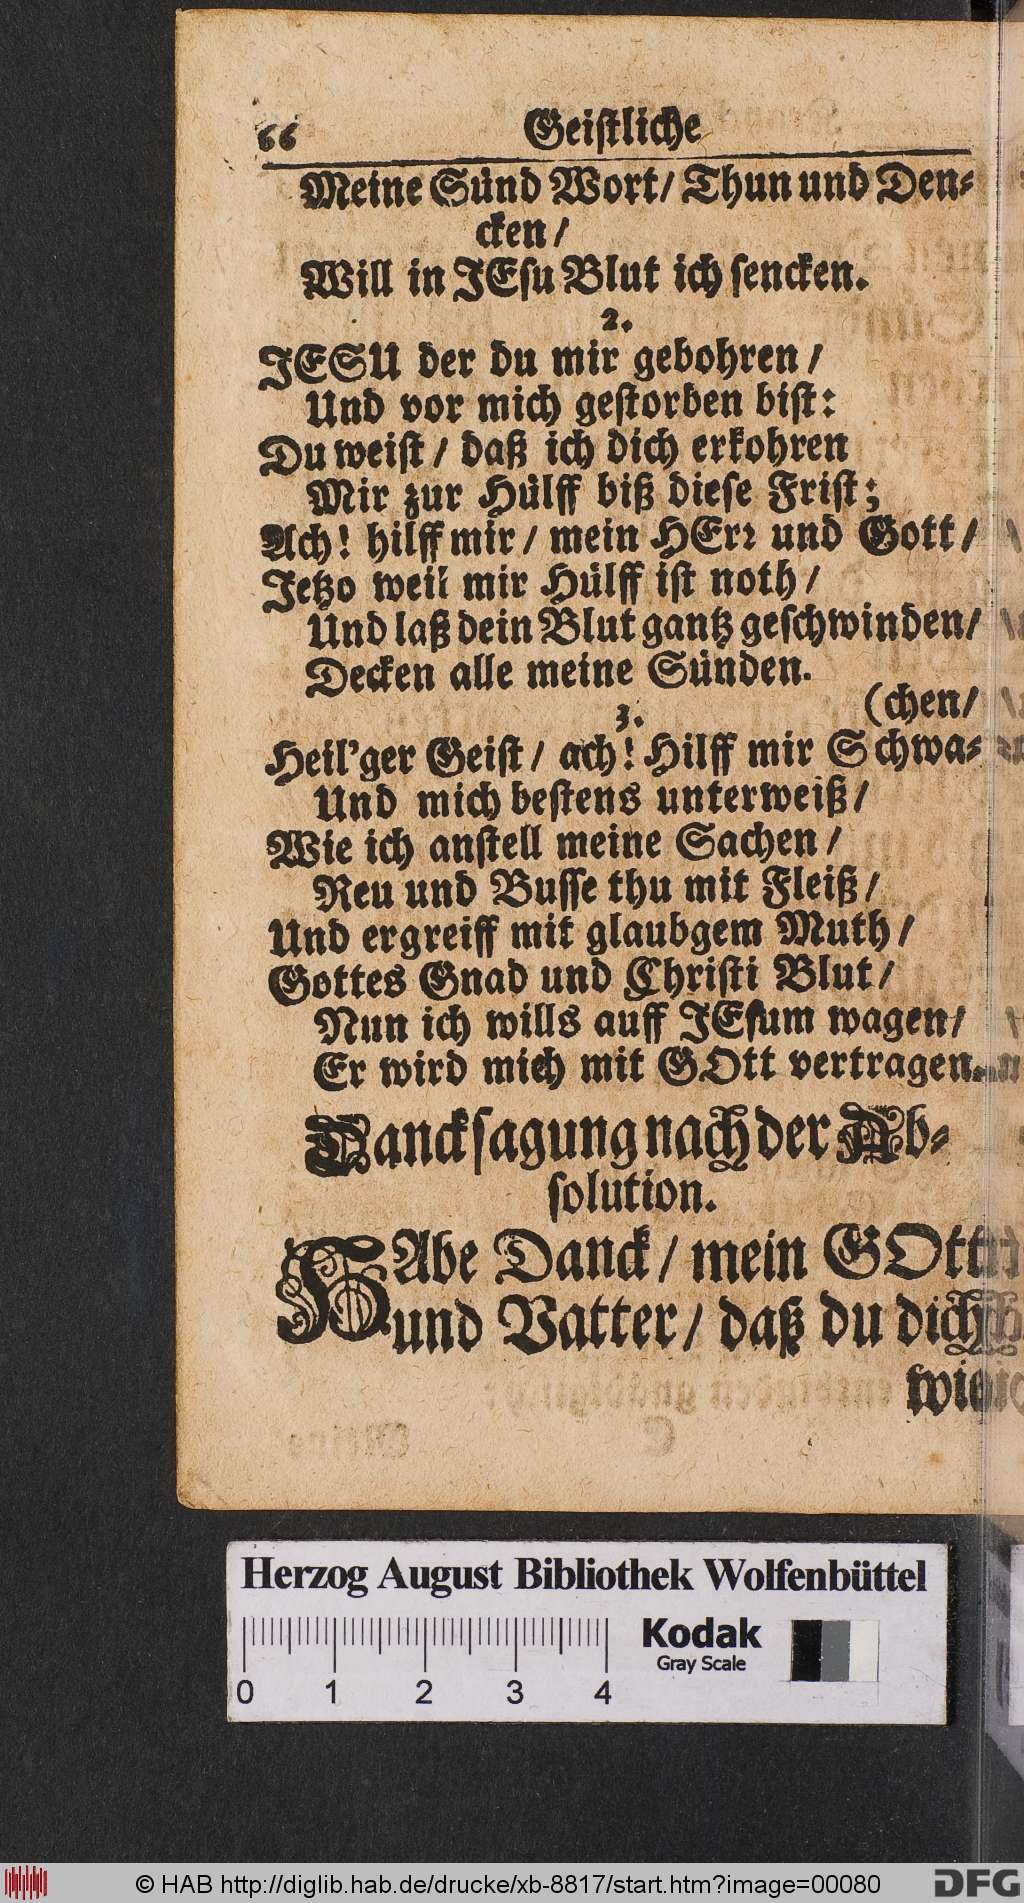 66 Geistliche
Meine Sünd Wort/ Thun und Den-
cken/
Will in JEsu Blut ich sencken.
2.
JESU der du mir gebohren/
Und vor mich gestorben bist:
Du weist/ daß ich dich erkohren
Mir zur Hülff biß diese Frist;
Ach! hilff mir/ mein HErr und Gott/
Jetzo weil mir Hülff ist noth/
Und laß dein Blut gantz geschwinden/
Decken alle meine Sünden.
3.
(chen/
Heil'ger Geist/ ach! Hilff mir Schwa-
Und mich bestens unterweiß/
Wie ich anstell meine Sachen/
Reu und Busse thu mit Fleiß/
Und ergreiff mit glaubgem Muth/
Gottes Gnad und Christi Blut/
Nun ich wills auff JEsum wagen/
Er wird mich mit GOtt vertragen.
Dancksagung nach der Ab-
solution.
HAbe Danck/ mein GOtt
und Vatter/ daß du dich
wie
Herzog August Bibliothek Wolfenbüttel
Kodak
Gray Scale
0 1 2 3 4
© HAB http://diglib.hab.de/drucke/xb-8817/start.htm?image=00080
DFG